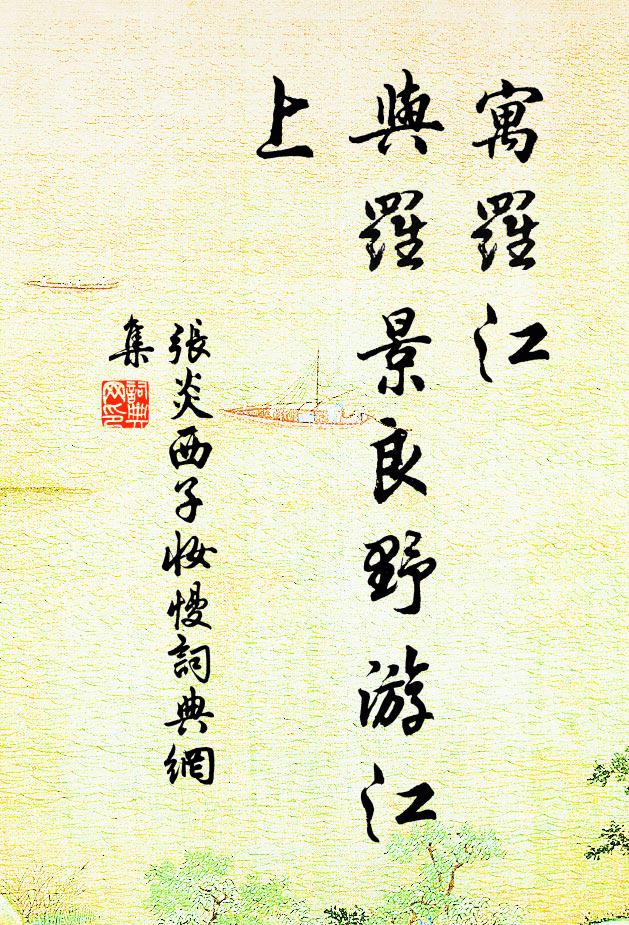 寓羅江
與羅景良野游江
上
張炎西子妝慢詞典網
集
詞典
网印